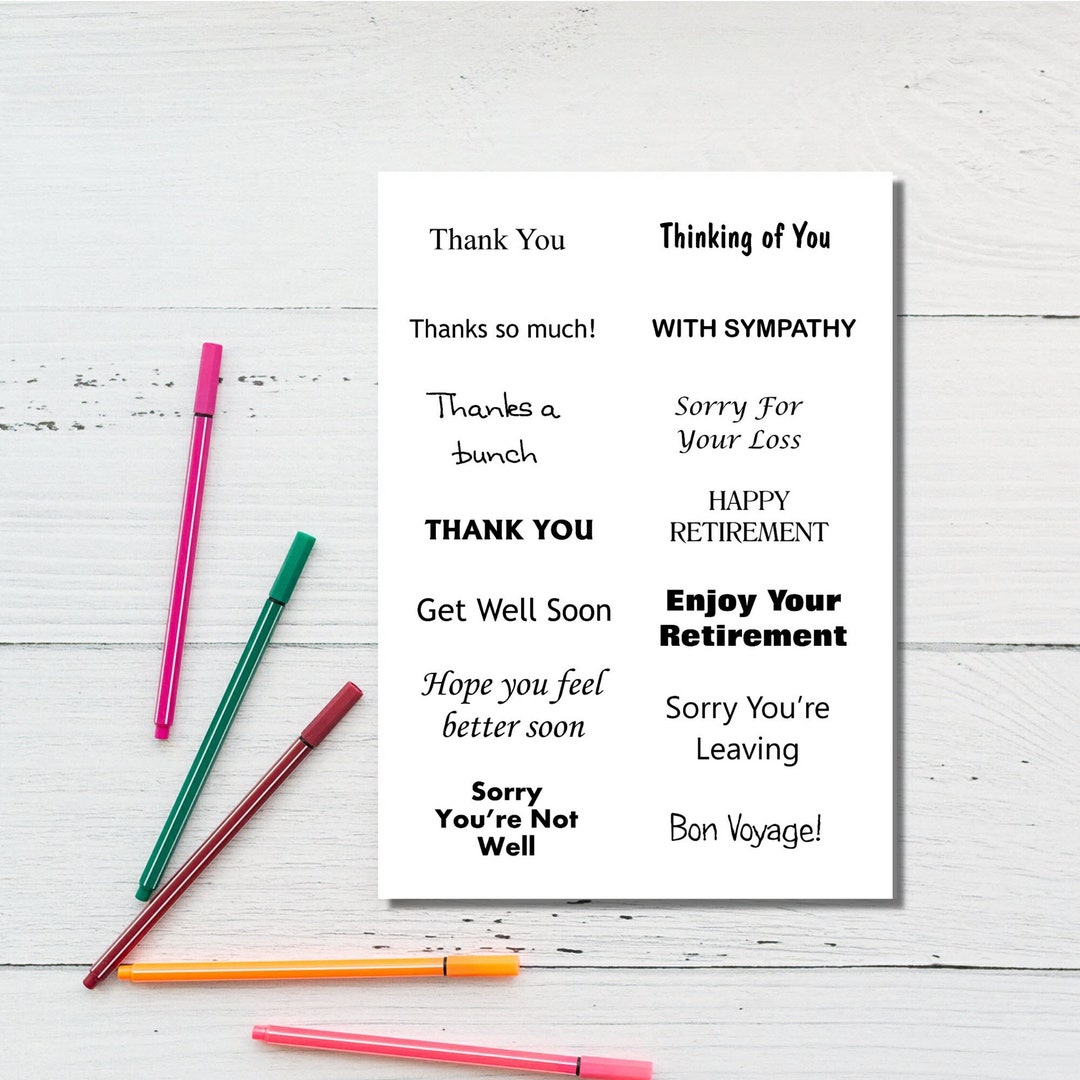 Thank You
Thanks so much!
Thanks a
bunch
THANK YOU
Get Well Soon
Hope you feel
better soon
Sorry
You're Not
Well
Thinking of You
WITH SYMPATHY
Sorry For
Your Loss
HAPPY
RETIREMENT
Enjoy Your
Retirement
Sorry You're
Leaving
Bon Voyage!